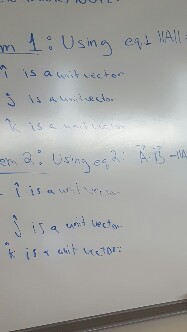 m 1: Using eq.1 ||A||
î is a unit vector
ĵ is a unit vector
k̂ is a unit vector
em 2: Using eq 2: A⃗·B⃗ = ||A
î is a unit vector
ĵ is a unit vector
k̂ is a unit vector